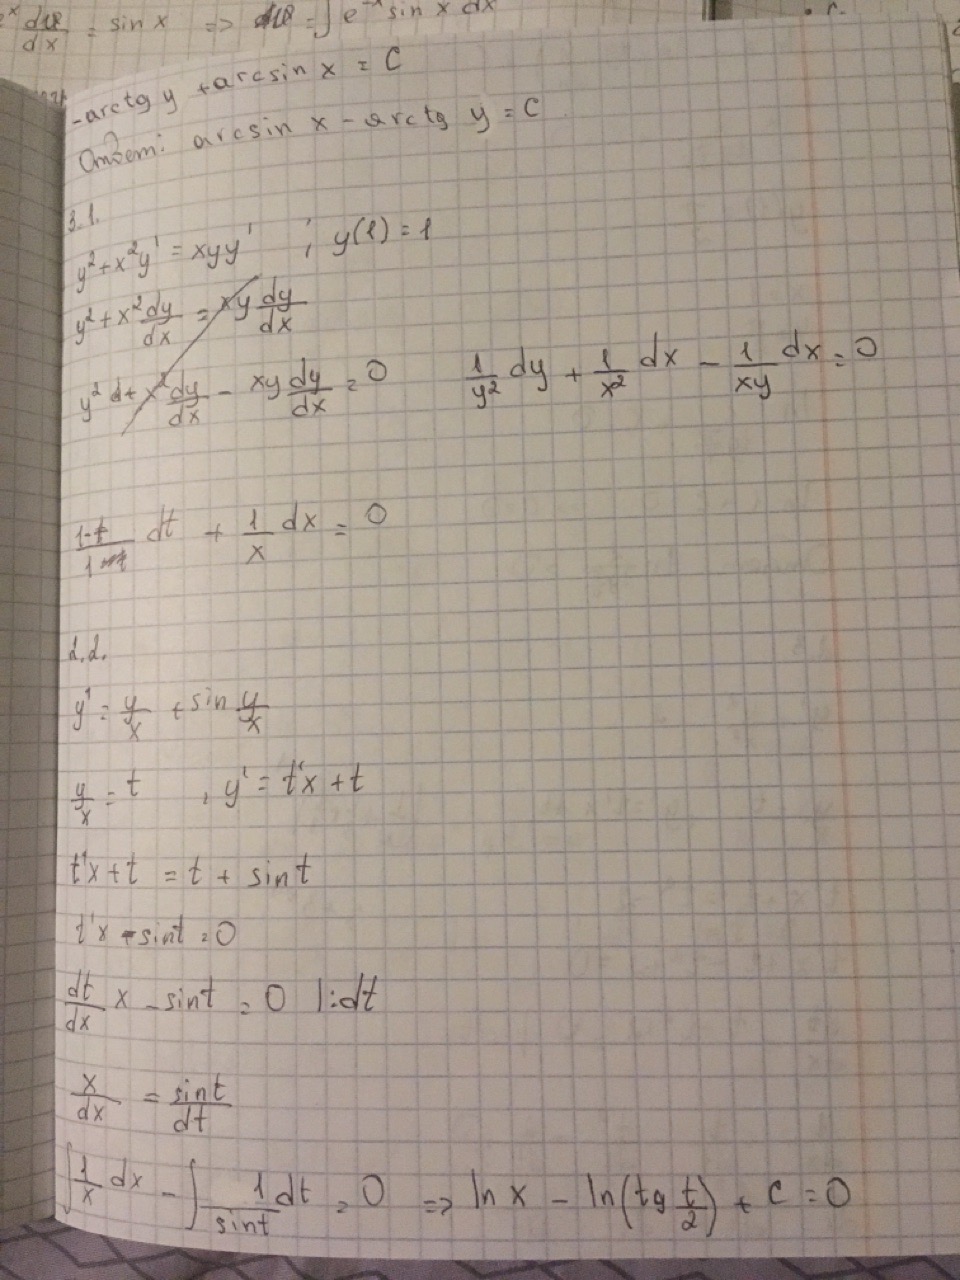 dx = sin x => = ∫ e⁻ˣ sin x dx
-arctg y + arcsin x = C
Ответ: arcsin x - arctg y = C
3.1.
y² + x²y' = xyy' ; y(1) = 1
y² + x² dy/dx = xy dy/dx
y² d+ x² dy/dx - xy dy/dx = 0 1/y² dy + 1/x² dx - 1/xy dx = 0
1-t/1 dt + 1/x dx = 0
2.2.
y' = y/x + sin y/x
y/x = t , y' = t'x + t
t'x + t = t + sin t
t'x - sin t = 0
dt/dx x - sin t = 0 |:dt
x/dx = sin t/dt
∫ 1/x dx - ∫ 1/sin t dt = 0 => ln x - ln(tg t/2) + C = 0